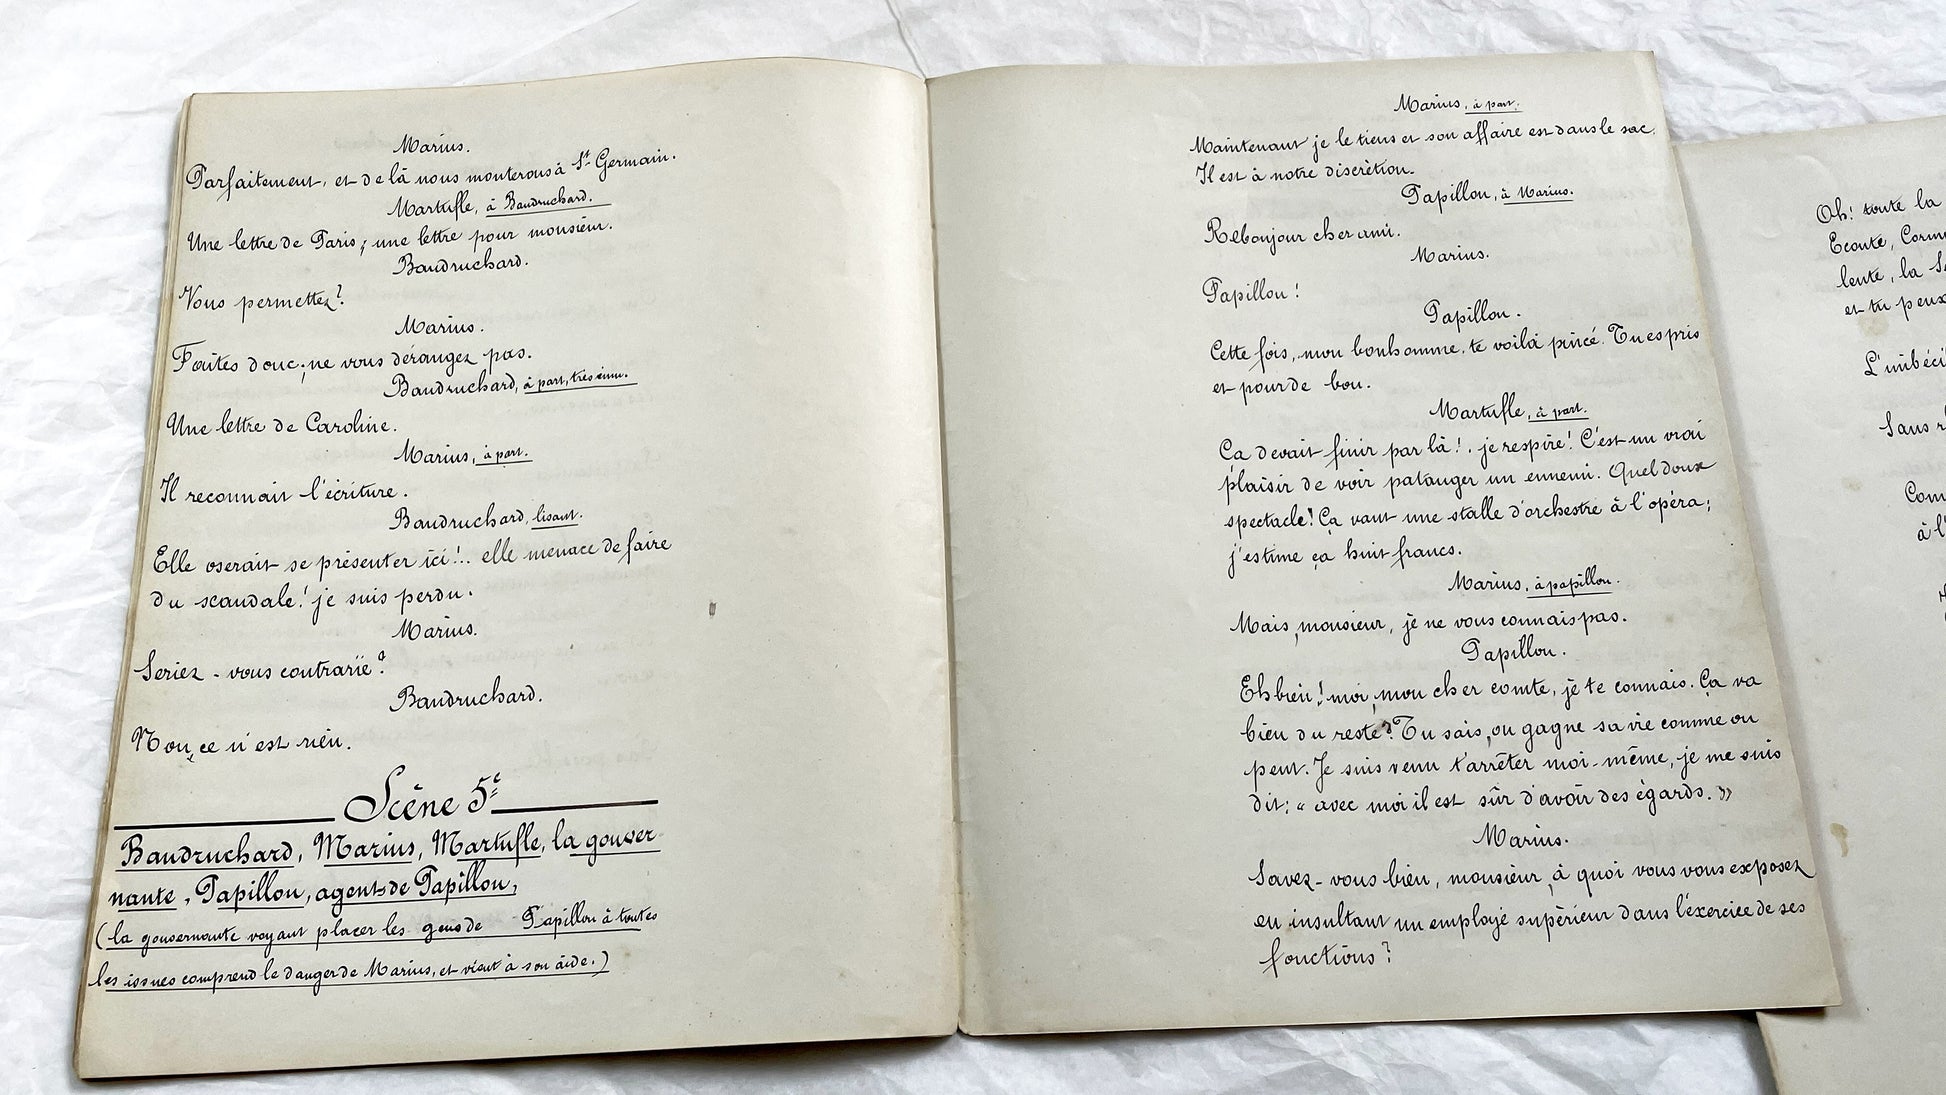 Marius.
Parfaitement, et de là nous monterons à St Germain.
Martufle, à Baudruchard.
Une lettre de Paris; une lettre pour monsieur.
Baudruchard.
Vous permettez?
Marius.
Faites donc; ne vous dérangez pas.
Baudruchard, à part, très ému.
Une lettre de Caroline.
Marius, à part.
Il reconnait l'écriture.
Baudruchard, lisant.
Elle oserait se présenter ici!... elle menace de faire
du scandale! je suis perdu.
Marius.
Seriez-vous contrarié?
Baudruchard.
Non, ce n'est rien.
Scène 5e
Baudruchard, Marius, Martufle, la gouver-
nante, Papillon, agents de Papillon,
(la gouvernante voyant placer les gens de Papillon à toutes
les issues comprend le danger de Marius, et vient à son aide.)
Marius, à part.
Maintenant je le tiens et son affaire est dans le sac.
Il est à notre discrétion.
Papillon, à Marius.
Rebonjour cher ami.
Marius.
Papillon!
Papillon.
Cette fois, mon bonhomme, te voilà pincé. Tu es pris
et pour de bon.
Martufle, à part.
Ça devait finir par là! je respire! C'est un vrai
plaisir de voir patauger un ennemi. Quel doux
spectacle! Ça vaut une stalle d'orchestre à l'opéra;
j'estime ça huit francs.
Marius, à papillon.
Mais, monsieur, je ne vous connais pas.
Papillon.
Eh bien! moi, mon cher comte, je te connais. Ça va
bien du reste? Tu sais, on gagne sa vie comme on
peut. Je suis venu t'arrêter moi-même, je me suis
dit: « avec moi il est sûr d'avoir des égards. »
Marius.
Savez-vous bien, monsieur, à quoi vous vous exposez
en insultant un employé supérieur dans l'exercice de ses
fonctions?
Oh! toute la
Ecoute,
lente, la
et tu peux
L'imbéci
Sans
Com
à l'